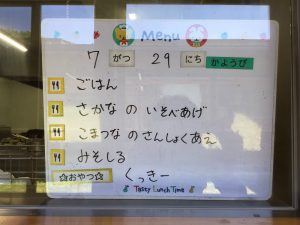 Menu
7 がつ 29 にち かようび
ごはん
さかな の いそべあげ
こまつな のさんしょくあえ
みそしる
☆おやつ☆ くっきー
Tasty Lunch Time